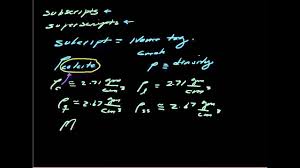 subscripts
superscripts
subscript = Name tag.
Greek
ρcalcite ρ = density
ρc = 2.71 gm/cm³ ρs = 2.71 gm/cm³
= 2.67 gm/cm³ ρss = 2.67 gm/cm³
M